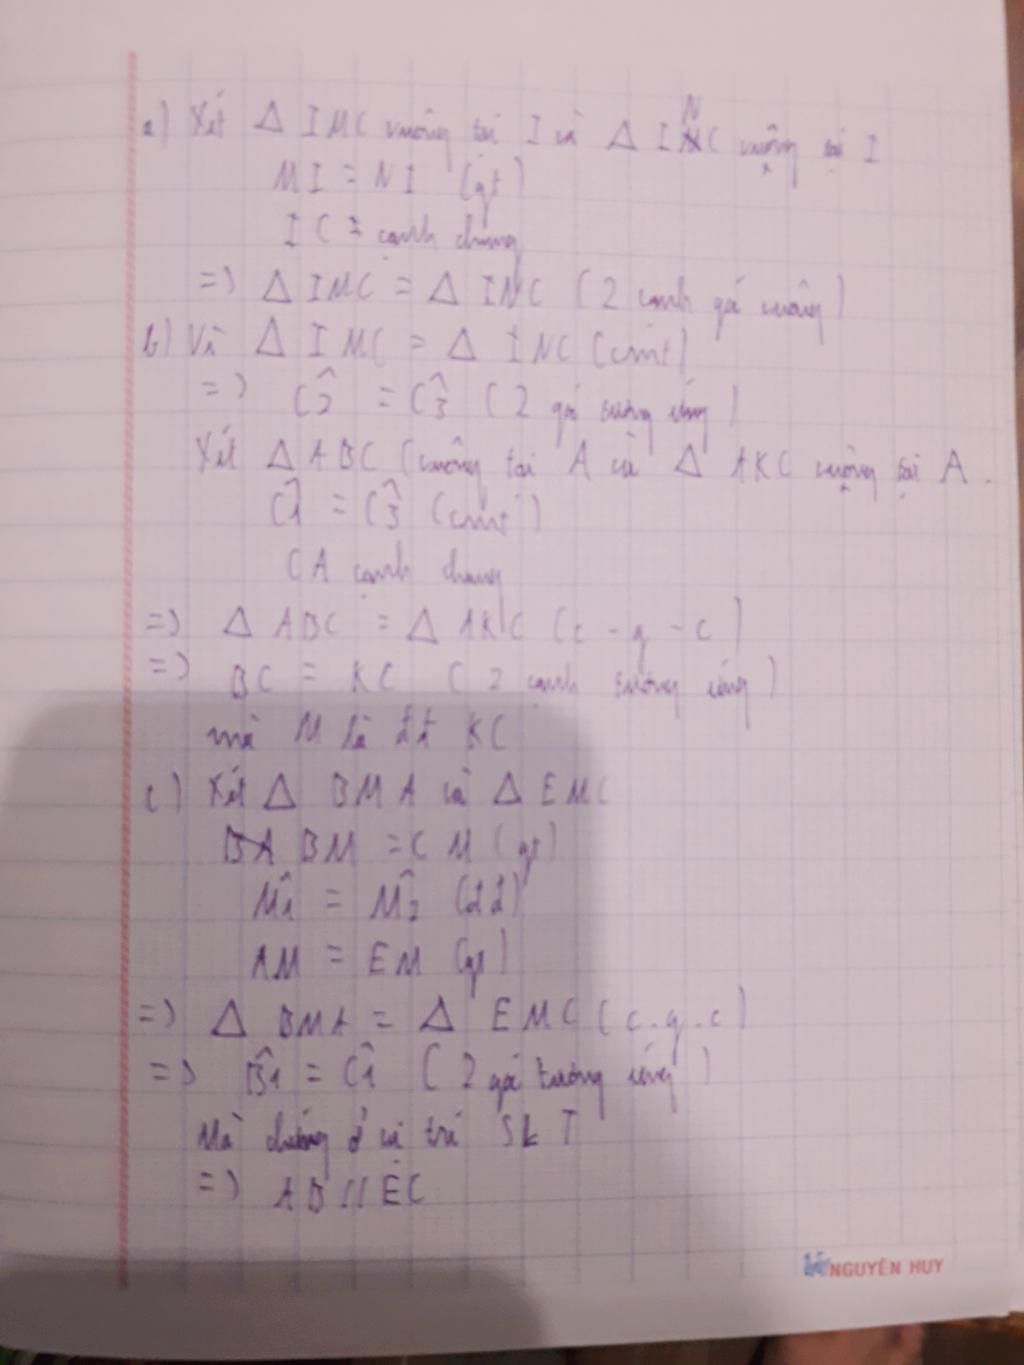 a) Xét Δ IMC vuông tại I và Δ INC vuộng tại I
MI = NI (gt)
IC = cạnh chung
=> Δ IMC = Δ INC (2 cạnh góc vuông)
b) Vì Δ IMC = Δ INC (cmt)
=> Ĉ2 = Ĉ3 (2 góc tương ứng)
Xét Δ ABC (vuông tại A và Δ AKC vuộng tại A.
Ĉ1 = Ĉ3 (cmt)
CA cạnh chung
=> Δ ABC = Δ AKC (c - g - c)
=> BC = KC (2 cạnh tương ứng)
mà M là tđ KC
c) Xét Δ BMA và Δ EMC
BM = CM (gt)
M̂1 = M̂2 (đđ)
AM = EM (gt)
=> Δ BMA = Δ EMC (c.g.c)
=> B̂1 = Ĉ1 (2 góc tương ứng)
Mà chúng ở vị trí SLT
=> AB // EC
NGUYÊN HUY